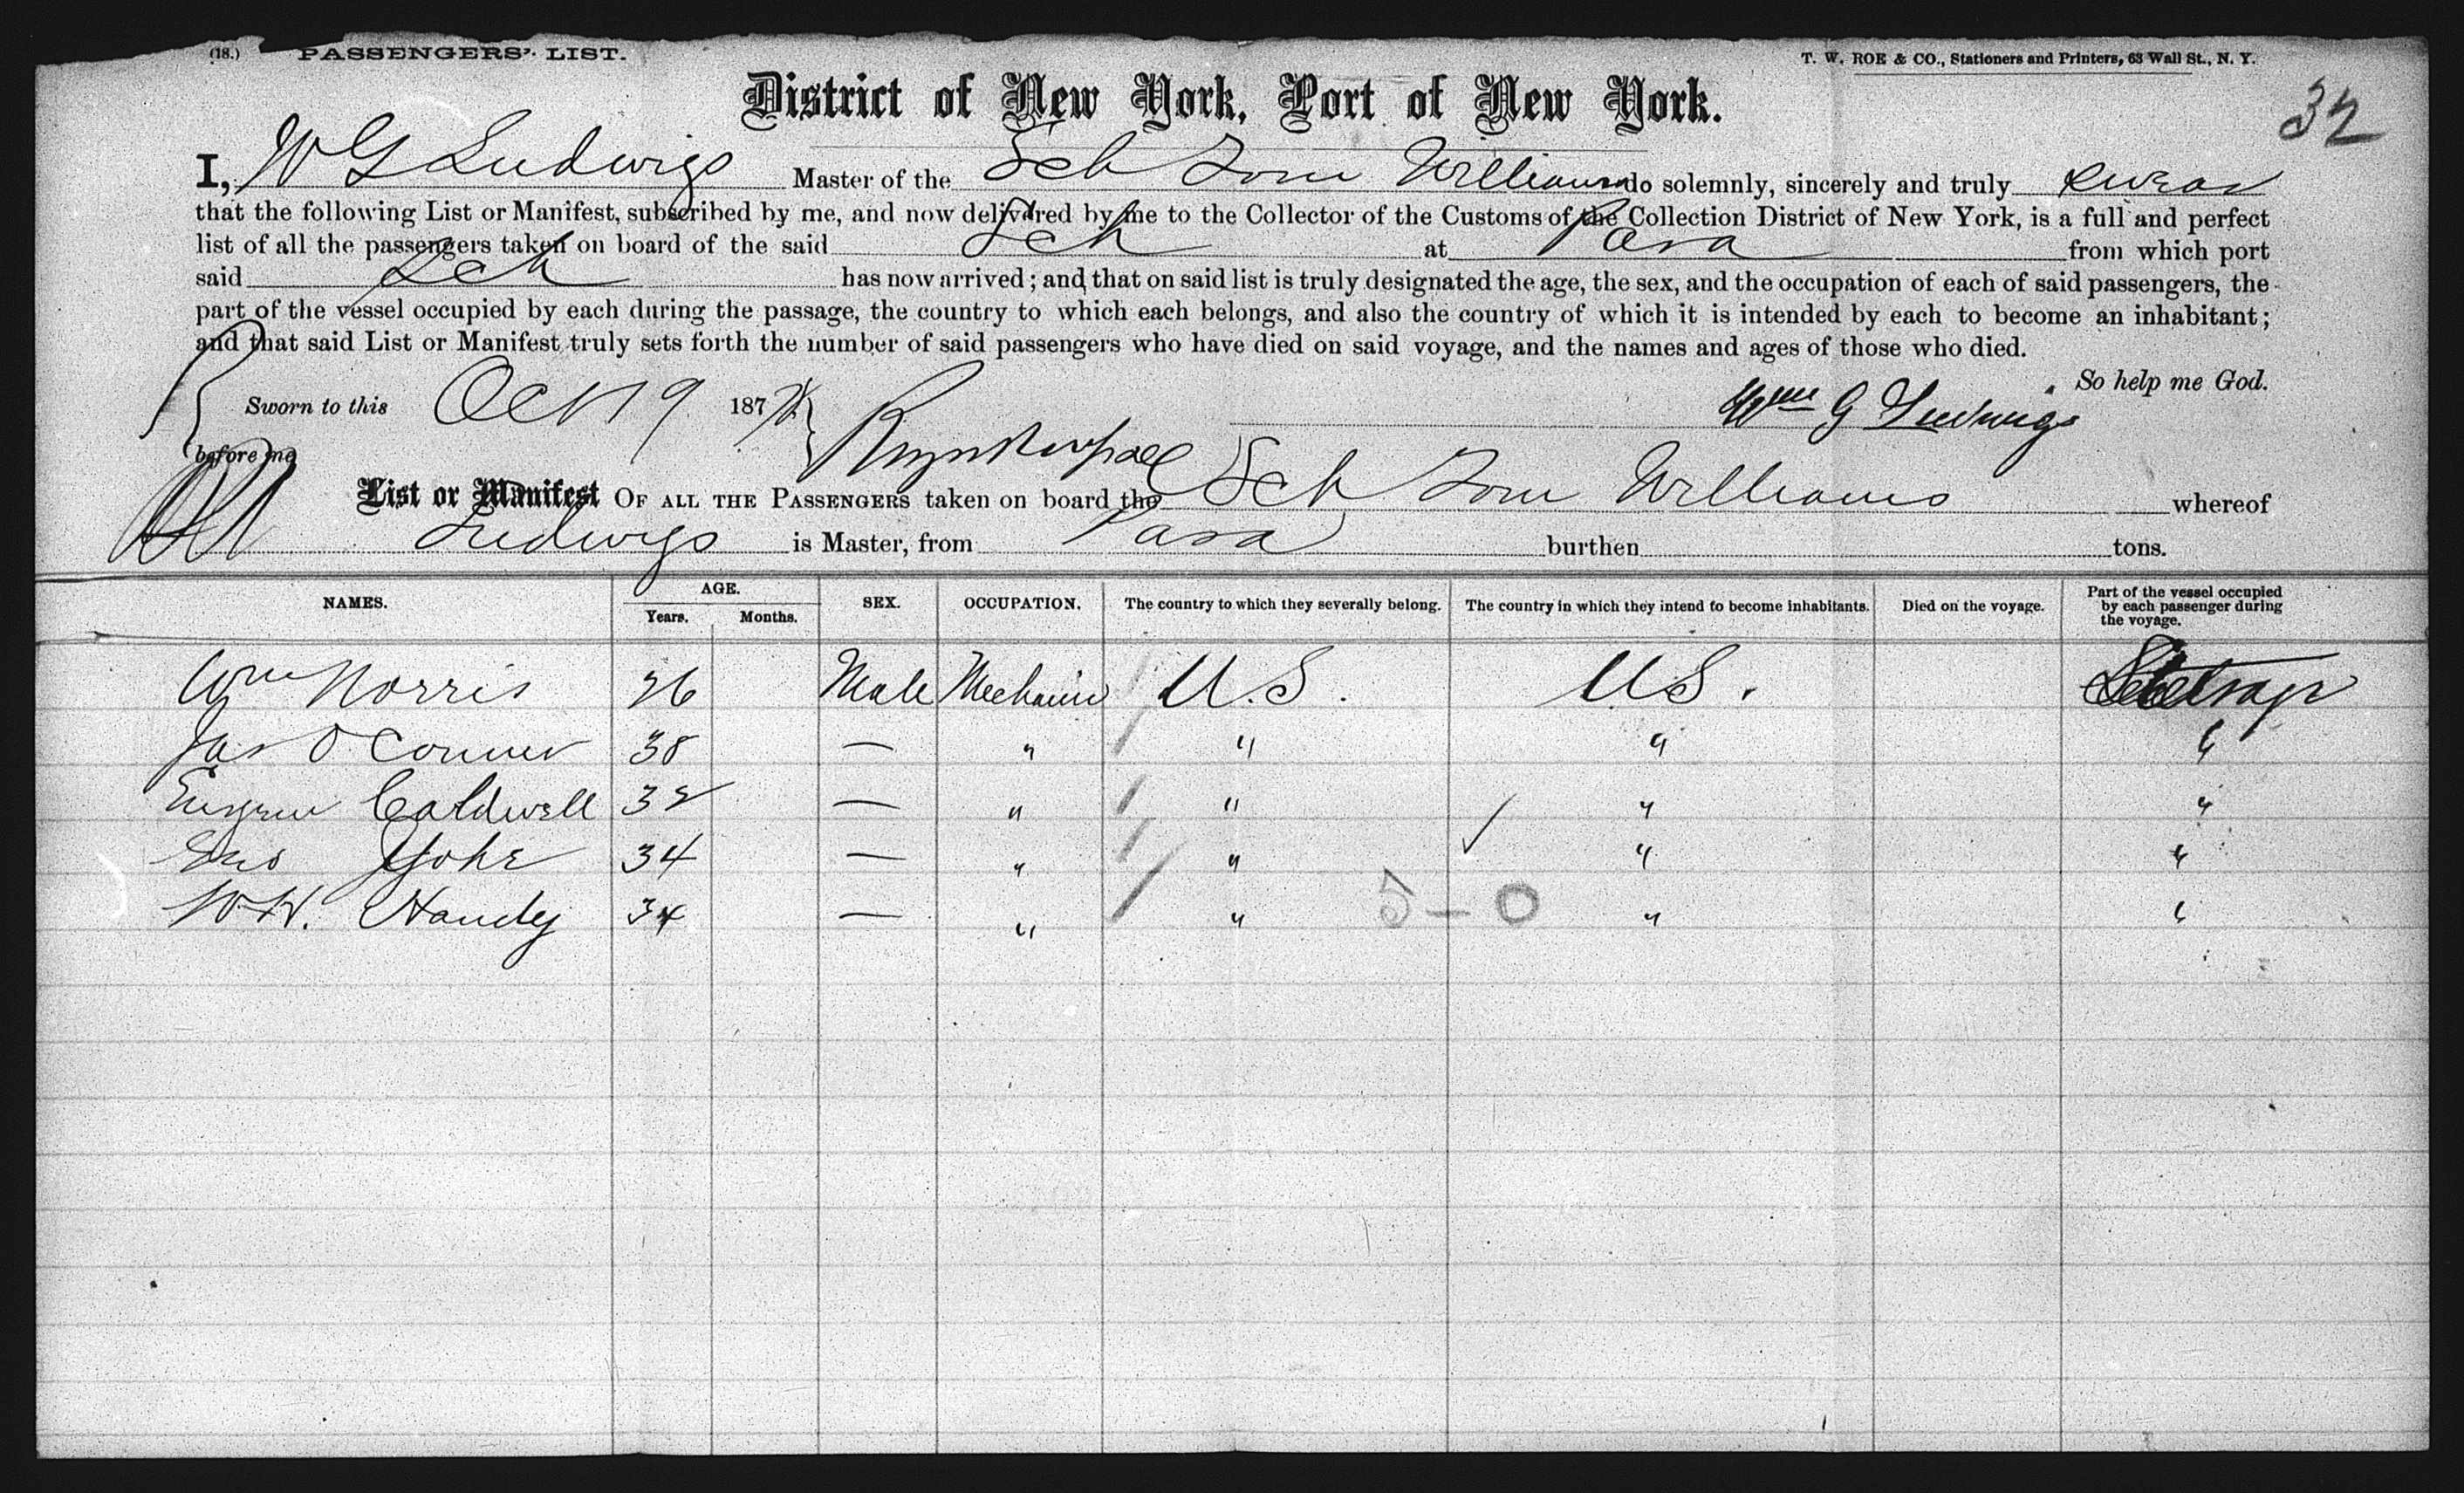 (18.) PASSENGERS' LIST. T. W. ROE & CO., Stationers and Printers, 63 Wall St., N. Y.
District of New York, Port of New York.
32
I, W G Ludwigs Master of the Sch Tom Williams do solemnly, sincerely and truly swear
that the following List or Manifest, subscribed by me, and now delivered by me to the Collector of the Customs of the Collection District of New York, is a full and perfect
list of all the passengers taken on board of the said Sch at Para from which port
said Sch has now arrived; and that on said list is truly designated the age, the sex, and the occupation of each of said passengers, the
part of the vessel occupied by each during the passage, the country to which each belongs, and also the country of which it is intended by each to become an inhabitant;
and that said List or Manifest truly sets forth the number of said passengers who have died on said voyage, and the names and ages of those who died.
So help me God.
Sworn to this Oct 19 187 Wm G Ludwigs
before me
List or Manifest OF ALL THE PASSENGERS taken on board the Sch Tom Williams whereof
Ludwigs is Master, from Para burthen tons.
NAMES. AGE. Years. Months. SEX. OCCUPATION. The country to which they severally belong. The country in which they intend to become inhabitants. Died on the voyage. Part of the vessel occupied by each passenger during the voyage.
Wm Norris 26 Male Mechanic U.S. U.S.
Jas O Conner 38 — " " " "
Eugene Caldwell 32 — " " " "
34 — " " " "
W.H. Handy 34 — " " " "
5 – 0